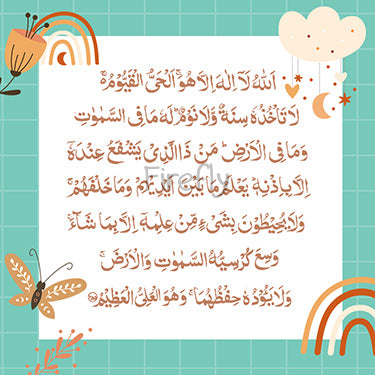 اَللّٰهُ لَآ اِلٰهَ اِلَّا هُوَۚ اَلْحَيُّ الْقَيُّوْمُ ەۚ
لَا تَأْخُذُهٗ سِنَةٌ وَّلَا نَوْمٌۗ لَهٗ مَا فِى السَّمٰوٰتِ
وَمَا فِى الْاَرْضِۗ مَنْ ذَا الَّذِيْ يَشْفَعُ عِنْدَهٗٓ
اِلَّا بِاِذْنِهٖۗ يَعْلَمُ مَا بَيْنَ اَيْدِيْهِمْ وَمَا خَلْفَهُمْۚ
Firefly
وَلَا يُحِيْطُوْنَ بِشَيْءٍ مِّنْ عِلْمِهٖٓ اِلَّا بِمَا شَاۤءَۚ
وَسِعَ كُرْسِيُّهُ السَّمٰوٰتِ وَالْاَرْضَۚ
وَلَا يَـُٔوْدُهٗ حِفْظُهُمَاۚ وَهُوَ الْعَلِيُّ الْعَظِيْمُ